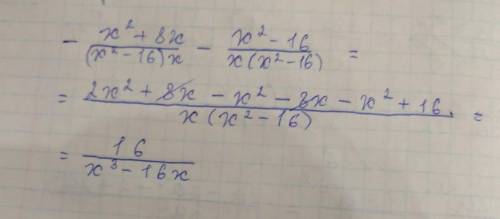 - (x² + 8x)/((x² - 16)x) - (x² - 16)/(x(x² - 16)) =
= (2x² + 8x - x² - 8x - x² + 16)/(x(x² - 16)) =
= 16/(x³ - 16x)